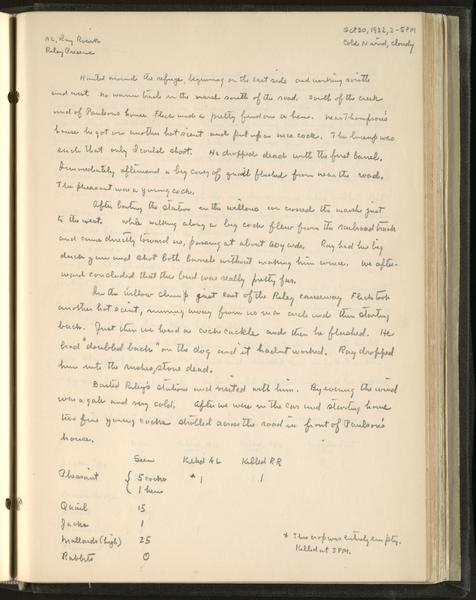 AL, Ray Roark
Riley Preserve
Oct 30, 1932, 2-5 PM
Cold N wind, cloudy
Hunted around the refuge, beginning on the east side and working south
and west. No warm trails in the marsh south of the road. South of the creek
and of Paulson's house Flick made a pretty find on a hen. Near Thompson's
house he got on another hot scent and put up a nice cock. The lineup was
such that only I could shoot. He dropped dead with the first barrel.
Immediately afterward a big covey of quail flushed from near the road.
The pheasant was a young cock.
After baiting the station in the willows we crossed the marsh just
to the west. While walking along a big cock flew from the railroad track
and came directly toward us, passing at about 60 yards. Ray had his big
duck gun and shot both barrels without making him wince. We after-
ward concluded that the bird was really pretty far.
In the willow clump just east of the Riley causeway Flick took
another hot scent, running away from us in a circle and then starting
back. Just then we heard a cock cackle and then he flushed. He
had "doubled back" on the dog and it hadn't worked. Ray dropped
him into the rushes, stone dead.
Baited Riley's stations and visited with him. By evening the wind
was a gale and very cold. After we were in the car and starting home
two fine young cocks strolled across the road in front of Paulson's
house.
Seen Killed AL Killed RR
Pheasant { 5 cocks * 1 1
1 hen
Quail 15
Jacks 1
Mallards (high) 25
Rabbits 0
* This crop was entirely empty.
Killed at 3 PM.